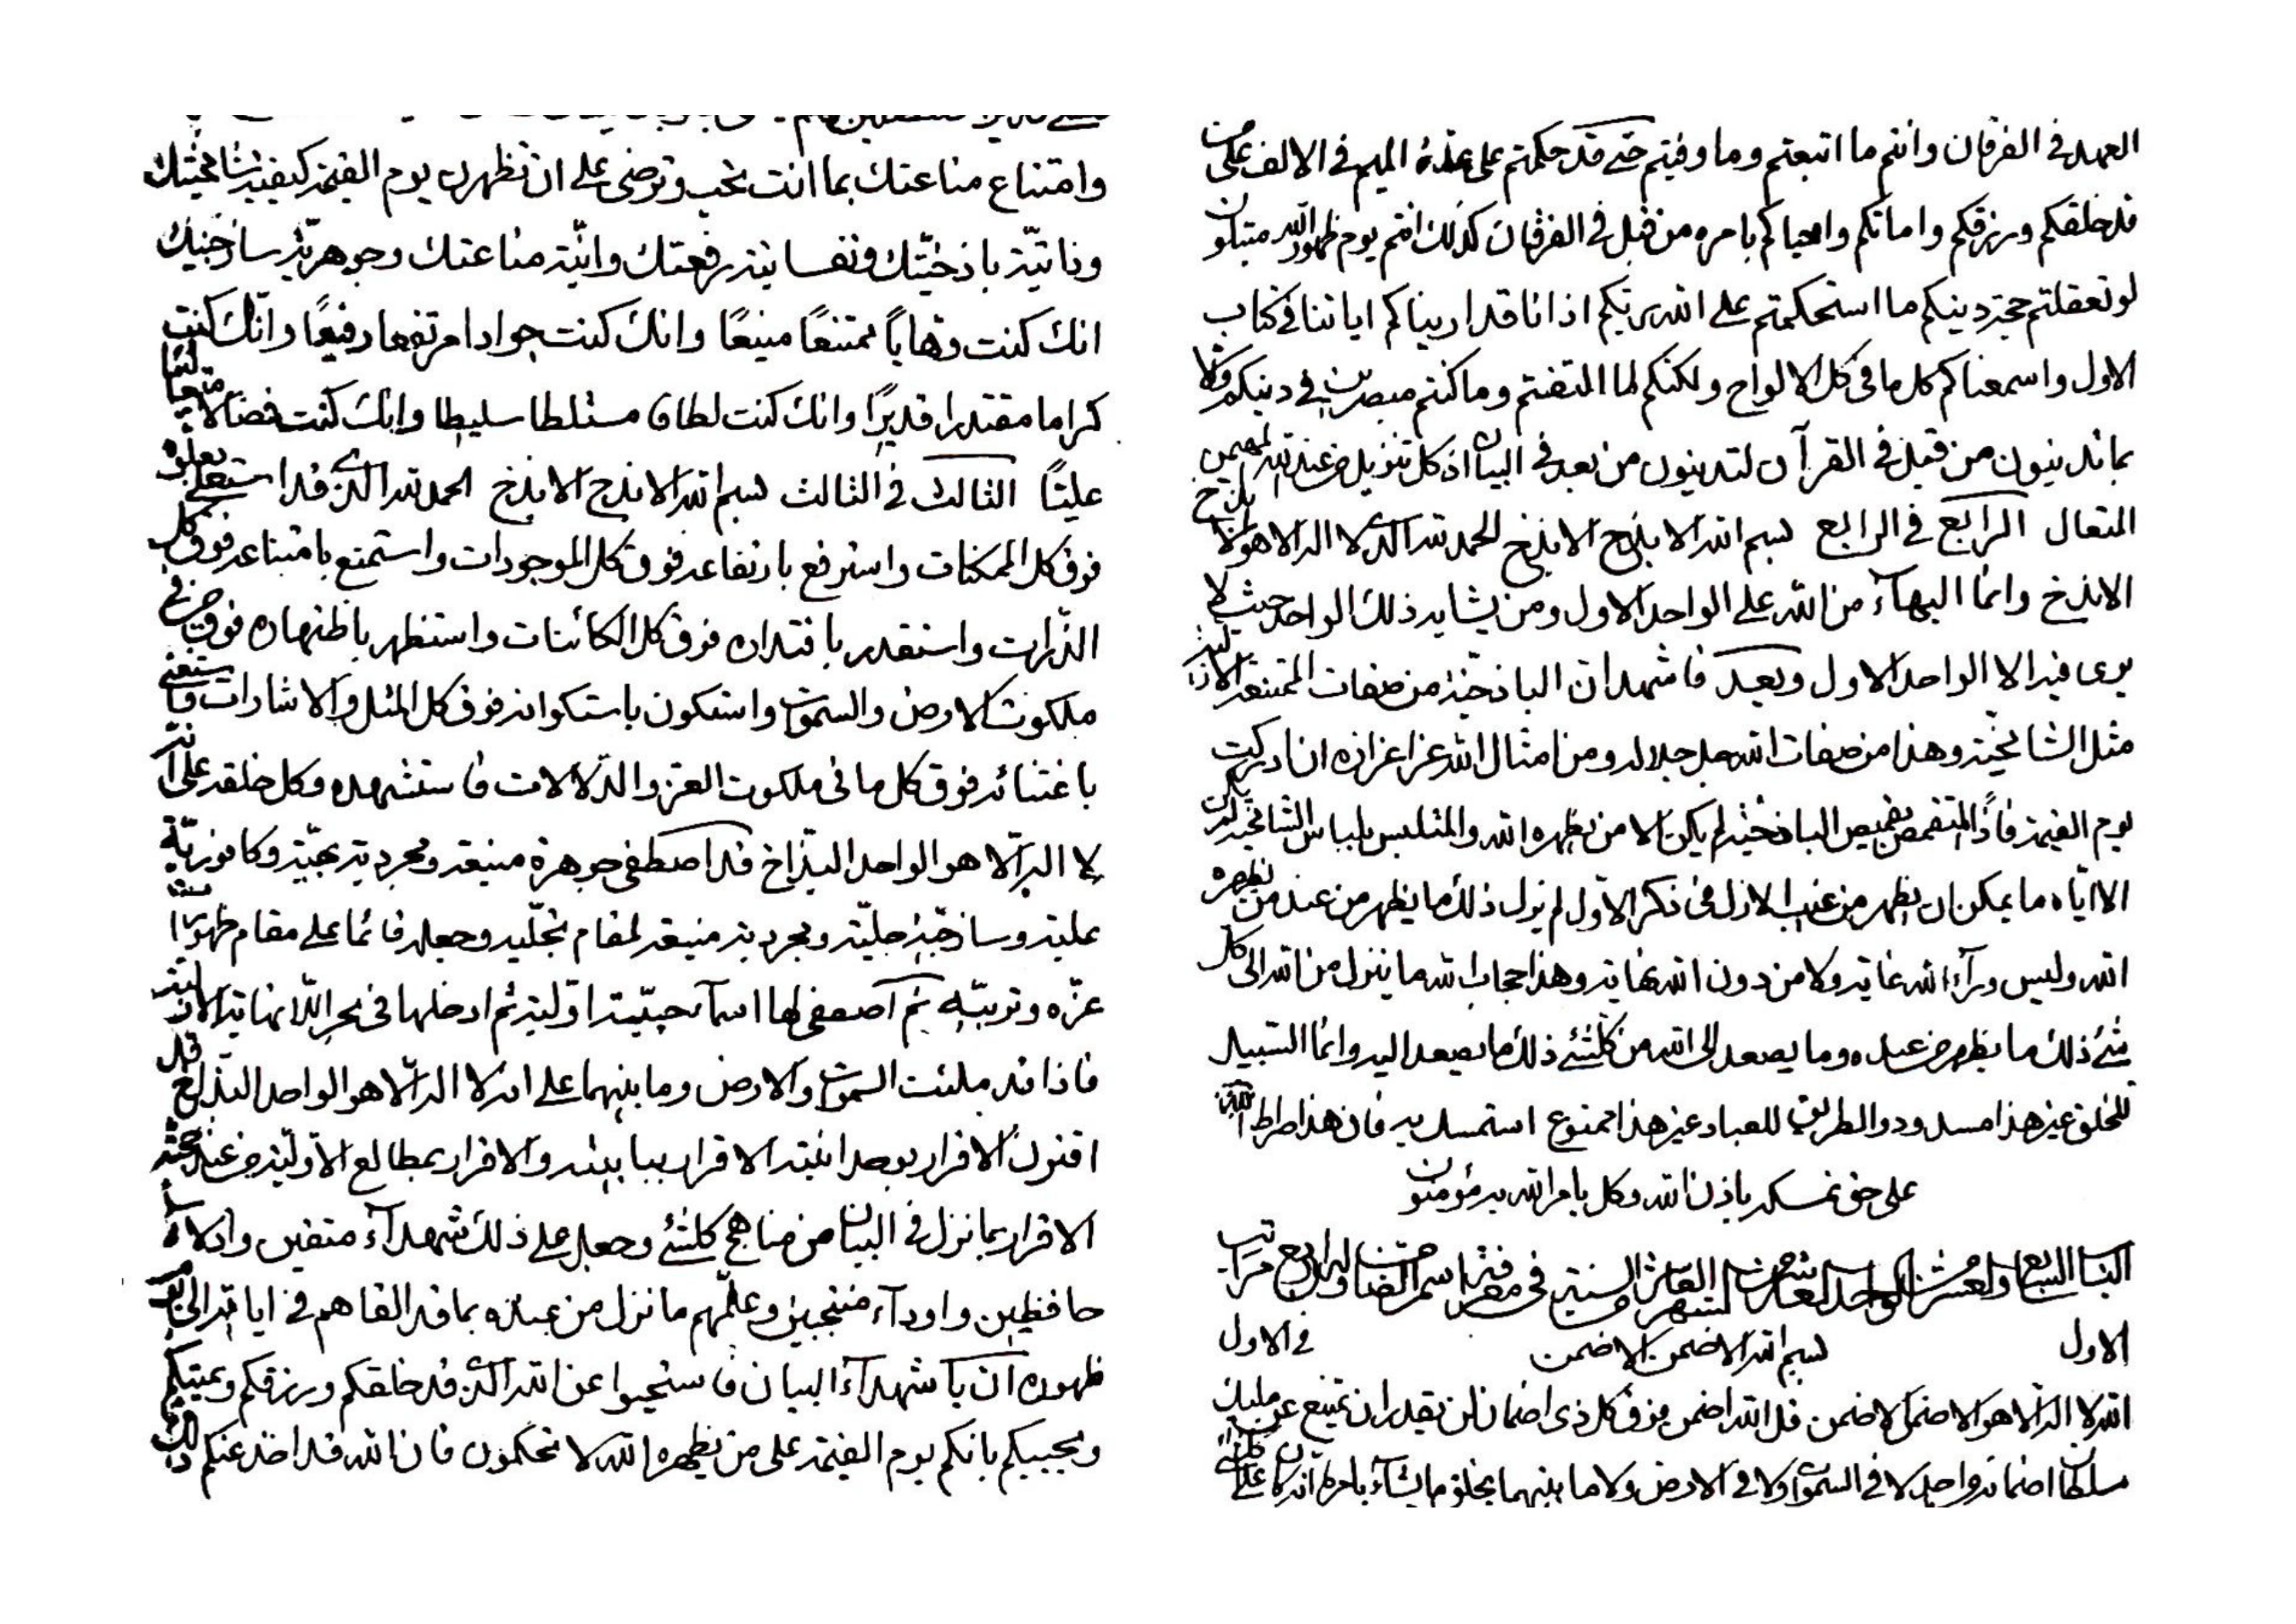 وامتناع مناعتك بما انت تحب وترضى على ان تظهرن يوم القيمة كيفية شامخيتك
وذاتية باذخيتك ونفسانية رفعتك وانية مناعتك وجوهرية ساذجيتك
انك كنت وهابا ممتنعا منيعا وانك كنت جوادا مرتفعا رفيعا وانك كنت
كراما مقتدرا قديرا وانك كنت لطافا متسلطا سليطا وانك كنت فضالا متعاليا
عليا الثالث في الثالث بسم الله الابذخ الابذخ الحمد لله الذي قد استعلى بعلوه
فوق كل الممكنات واسترفع بارتفاعه فوق كل الموجودات واستمنع بامتناعه فوق كل
الذرات واستقدر باقتداره فوق كل الكائنات واستظهر باظهاره فوق من في
ملكوت الارض والسموات واستكون باستكوانه فوق كل المثل والاشارات واستغنى
باغتنائه فوق كل ما في ملكوت العز والدلالات فاستشهده وكل خلقه على انه
لا اله الا هو الواحد البذاخ قد اصطفى جوهرة منيعة ومجردية بهية وكافورية
علية وساذجية جلية ومجردية منيعة لمقام تجليه وجعله قائما على مقام ظهور
عزه وتربيته ثم اصطفى لها اسماء حيية اولية ثم ادخلها في بحر اللانهاية الازلية
فاذا قد ملئت السموات والارض وما بينهما على انه لا اله الا هو الواحد البذاخ قد
اقترن الاقرار بوحدانيته الاقرار ببابيته والاقرار بمطالع الاولية من عند حجته
الاقرار بما نزل في البيان من مناهج كلشئ وجعل على ذلك شهدآء متقين وادلاء
حافظين واودآء منتجبين وعلمهم ما نزل من عنده بما قد القاهم في اياته الى يوم
ظهوره ان يا شهدآء البيان فاستحيوا عن الله الذي قد خلقكم ورزقكم ويميتكم
ويحييكم بانكم يوم القيمة على من يظهره الله لا تحكمون فان الله قد اخذ عنكم ذلك
العهد في الفرقان وانتم ما اتبعتم وما وفيتم حتى قد حكمتم على عدة الميم في الالف على من
قد خلقكم ورزقكم واماتكم واحياكم بامره من قبل في الفرقان كذلك انتم يوم ظهور الله متبلون
لو تعقلتم حجة دينكم ما استحكمتم على الله ربكم اذ انا قد اريناكم اياتنا في كتاب
الاول واسمعناكم كل ما في كل الالواح ولكنكم لما التفتم وما كنتم مبصرين في دينكم وكلا
بما تدينون من قبل في القرآن لتدينون من بعد في البيان اذ كل تنزيل من عند الله المهيمن
المتعال الرابع في الرابع بسم الله الابذخ الابذخ الحمد لله الذي لا اله الا هو الابذخ
الابذخ وانما البهآء من الله على الواحد الاول ومن يشابه ذلك الواحد حيث لا
يرى فيه الا الواحد الاول وبعد فاشهد ان الباذخية من صفات الممتنعة الازلية
مثل الشامخية وهذا من صفات الله جل جلاله ومن امثال الله عز اعزازه ان ادركت
يوم القيمة فاذا المتقمص بقميص الباذخية لم يكن الا من يظهره الله والمتلبس بلباس الشامخية لم يكن
الا اياه ما يمكن ان يظهر من غيب الازل في ذكر الاول لم يزل ذلك ما يظهر من عند من يظهره
الله وليس ورآء الله غاية ولا من دون الله نهاية وهذا حجاب الله ما ينزل من الله الى كل
شئ ذلك ما يظهر من عنده وما يصعد الى الله من كلشئ ذلك ما يصعد اليه وانما السبيل
للخلق غير هذا مسدود والطريق للعباد غير هذا ممتنوع استمسك به فان هذا صراط الله
على حق تمسك باذن الله وكل بامر الله به مؤمنون
الباب السابع والعشر من الواحد العاشر من الشهر العاشر من السنة في معرفة اسم الضمان وله اربع مراتب
الاول في الاول
بسم الله الاضمن الاضمن
الله لا اله الا هو الاضمن الاضمن قل الله اضمن فوق كل ذي اضمان لن يقدر ان يمتنع عن مليك
سلطان اضمانه من احد لا في السموات ولا في الارض ولا ما بينهما يخلق ما يشآء بامره انه كان على كلشئ